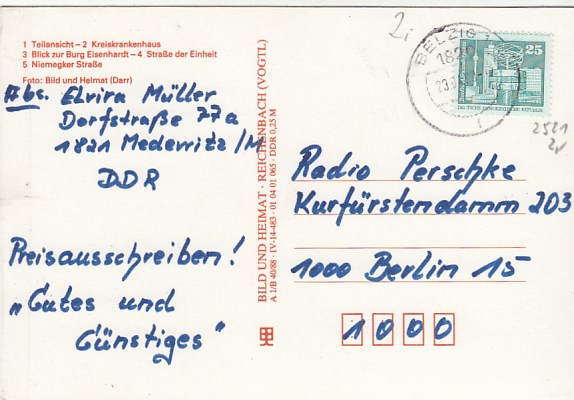 1 Teilansicht – 2 Kreiskrankenhaus
3 Blick zur Burg Eisenhardt – 4 Straße der Einheit
5 Niemegker Straße
Foto: Bild und Heimat (Darr)
Abs. Elvira Müller
Dorfstraße 77a
1821 Mederwitz/M
DDR
Preisausschreiben!
„Gutes und
Günstiges"
BILD UND HEIMAT · REICHENBACH (VOGTL)
A 1/B 40/88 · IV-14-483 · 01 04 01 065 · DDR 0,25 M
2i
BELZIG 1
25
DEUTSCHE DEMOKRATISCHE REPUBLIK
2521
Radio Perschke
Kurfürstendamm 203
1000 Berlin 15
1000